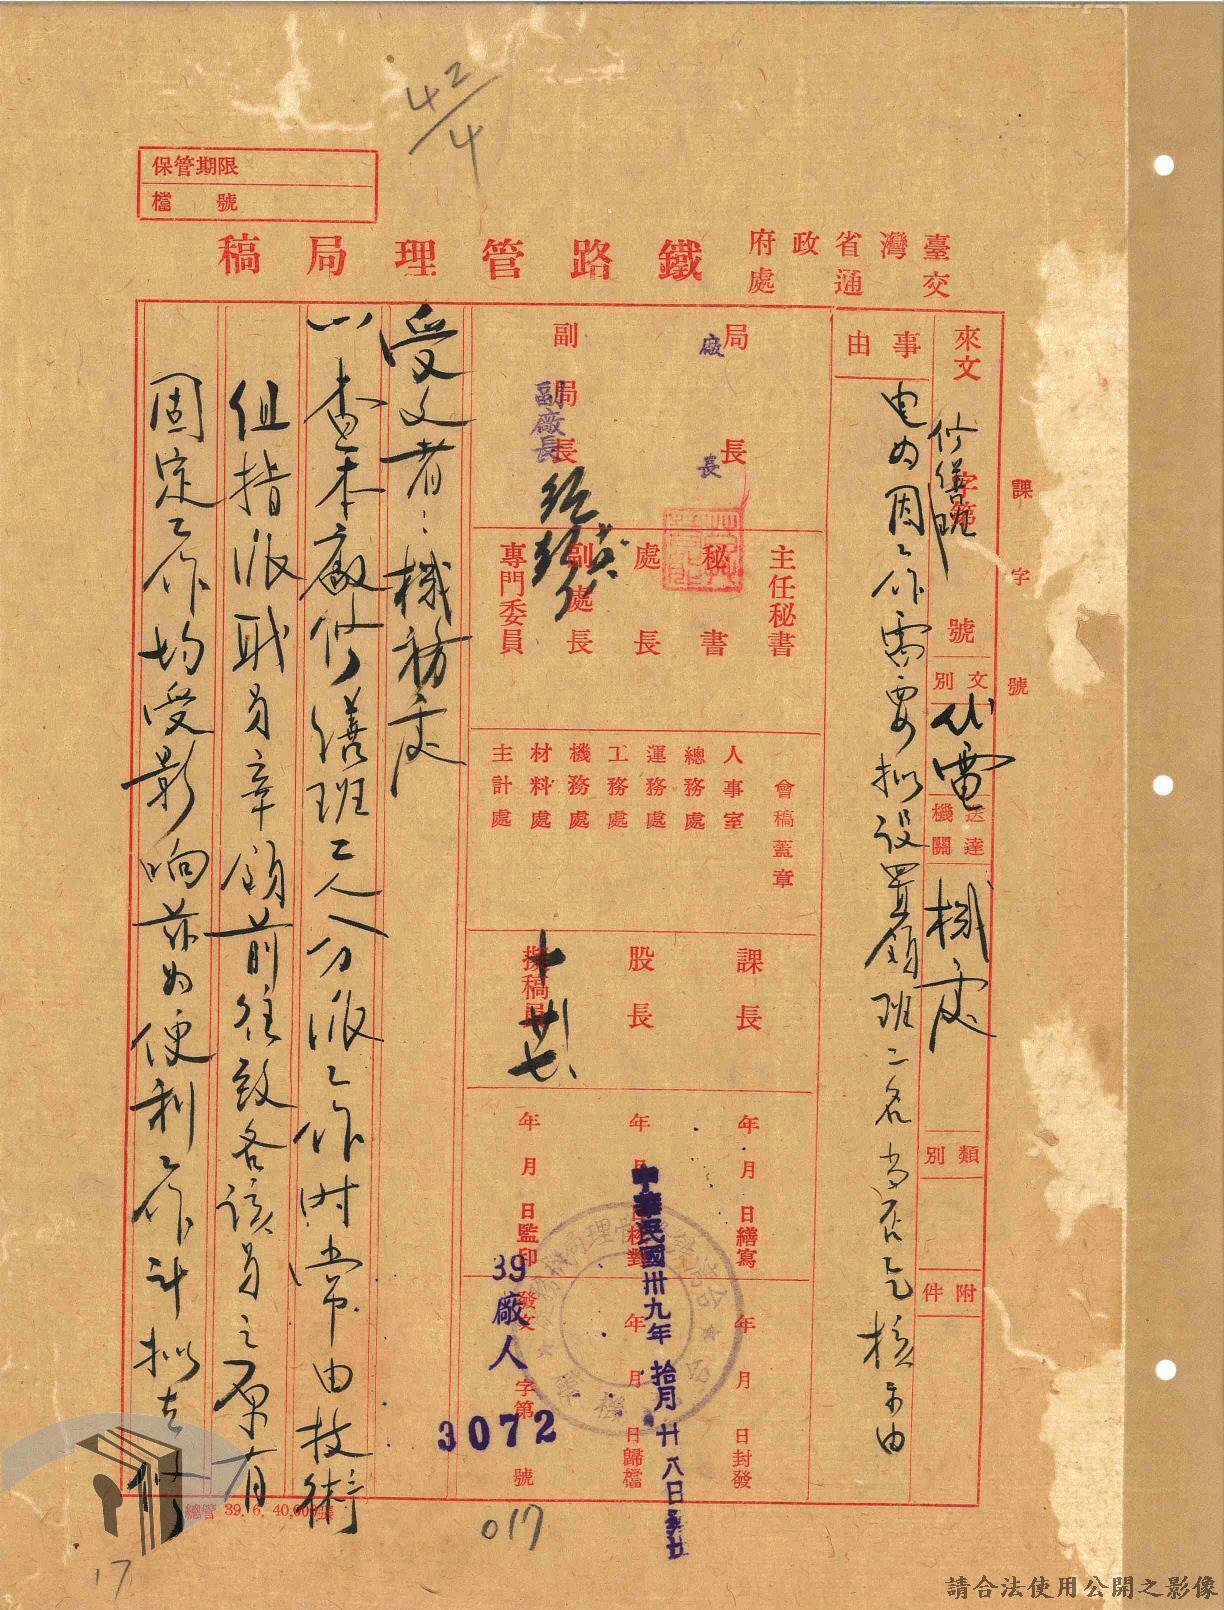 42/4
保管期限
檔　號
臺灣省政府
交通處
鐵路管理局稿
來文　修繕班　字第　號
課　字　號
文別　代電
送達機關　機務處
類別
附件
事由
电为因工作需要拟設置領班二名当否乞核示由
局長
廠長
副局長
副廠長
主任秘書
秘書
處長
副處長
專門委員
會稿蓋章
人事室
總務處
運務處
工務處
機務處
材料處
主計處
課長
股長
擬稿員
十 廿七
年月日繕寫
年月日校對
年月日監印
年月日封發
年月日歸檔
中華民國卅九年拾月廿八日
39廠人
發文　字第　號
3072
受文者：機務處
一、查本廠修繕班工人分派工作时常由技術
组指派职員率領前往致各該員之原有
固定工作均受影响茲为便利工作計拟在修
總管 39. 6. 40,000張
017
17
請合法使用公開之影像